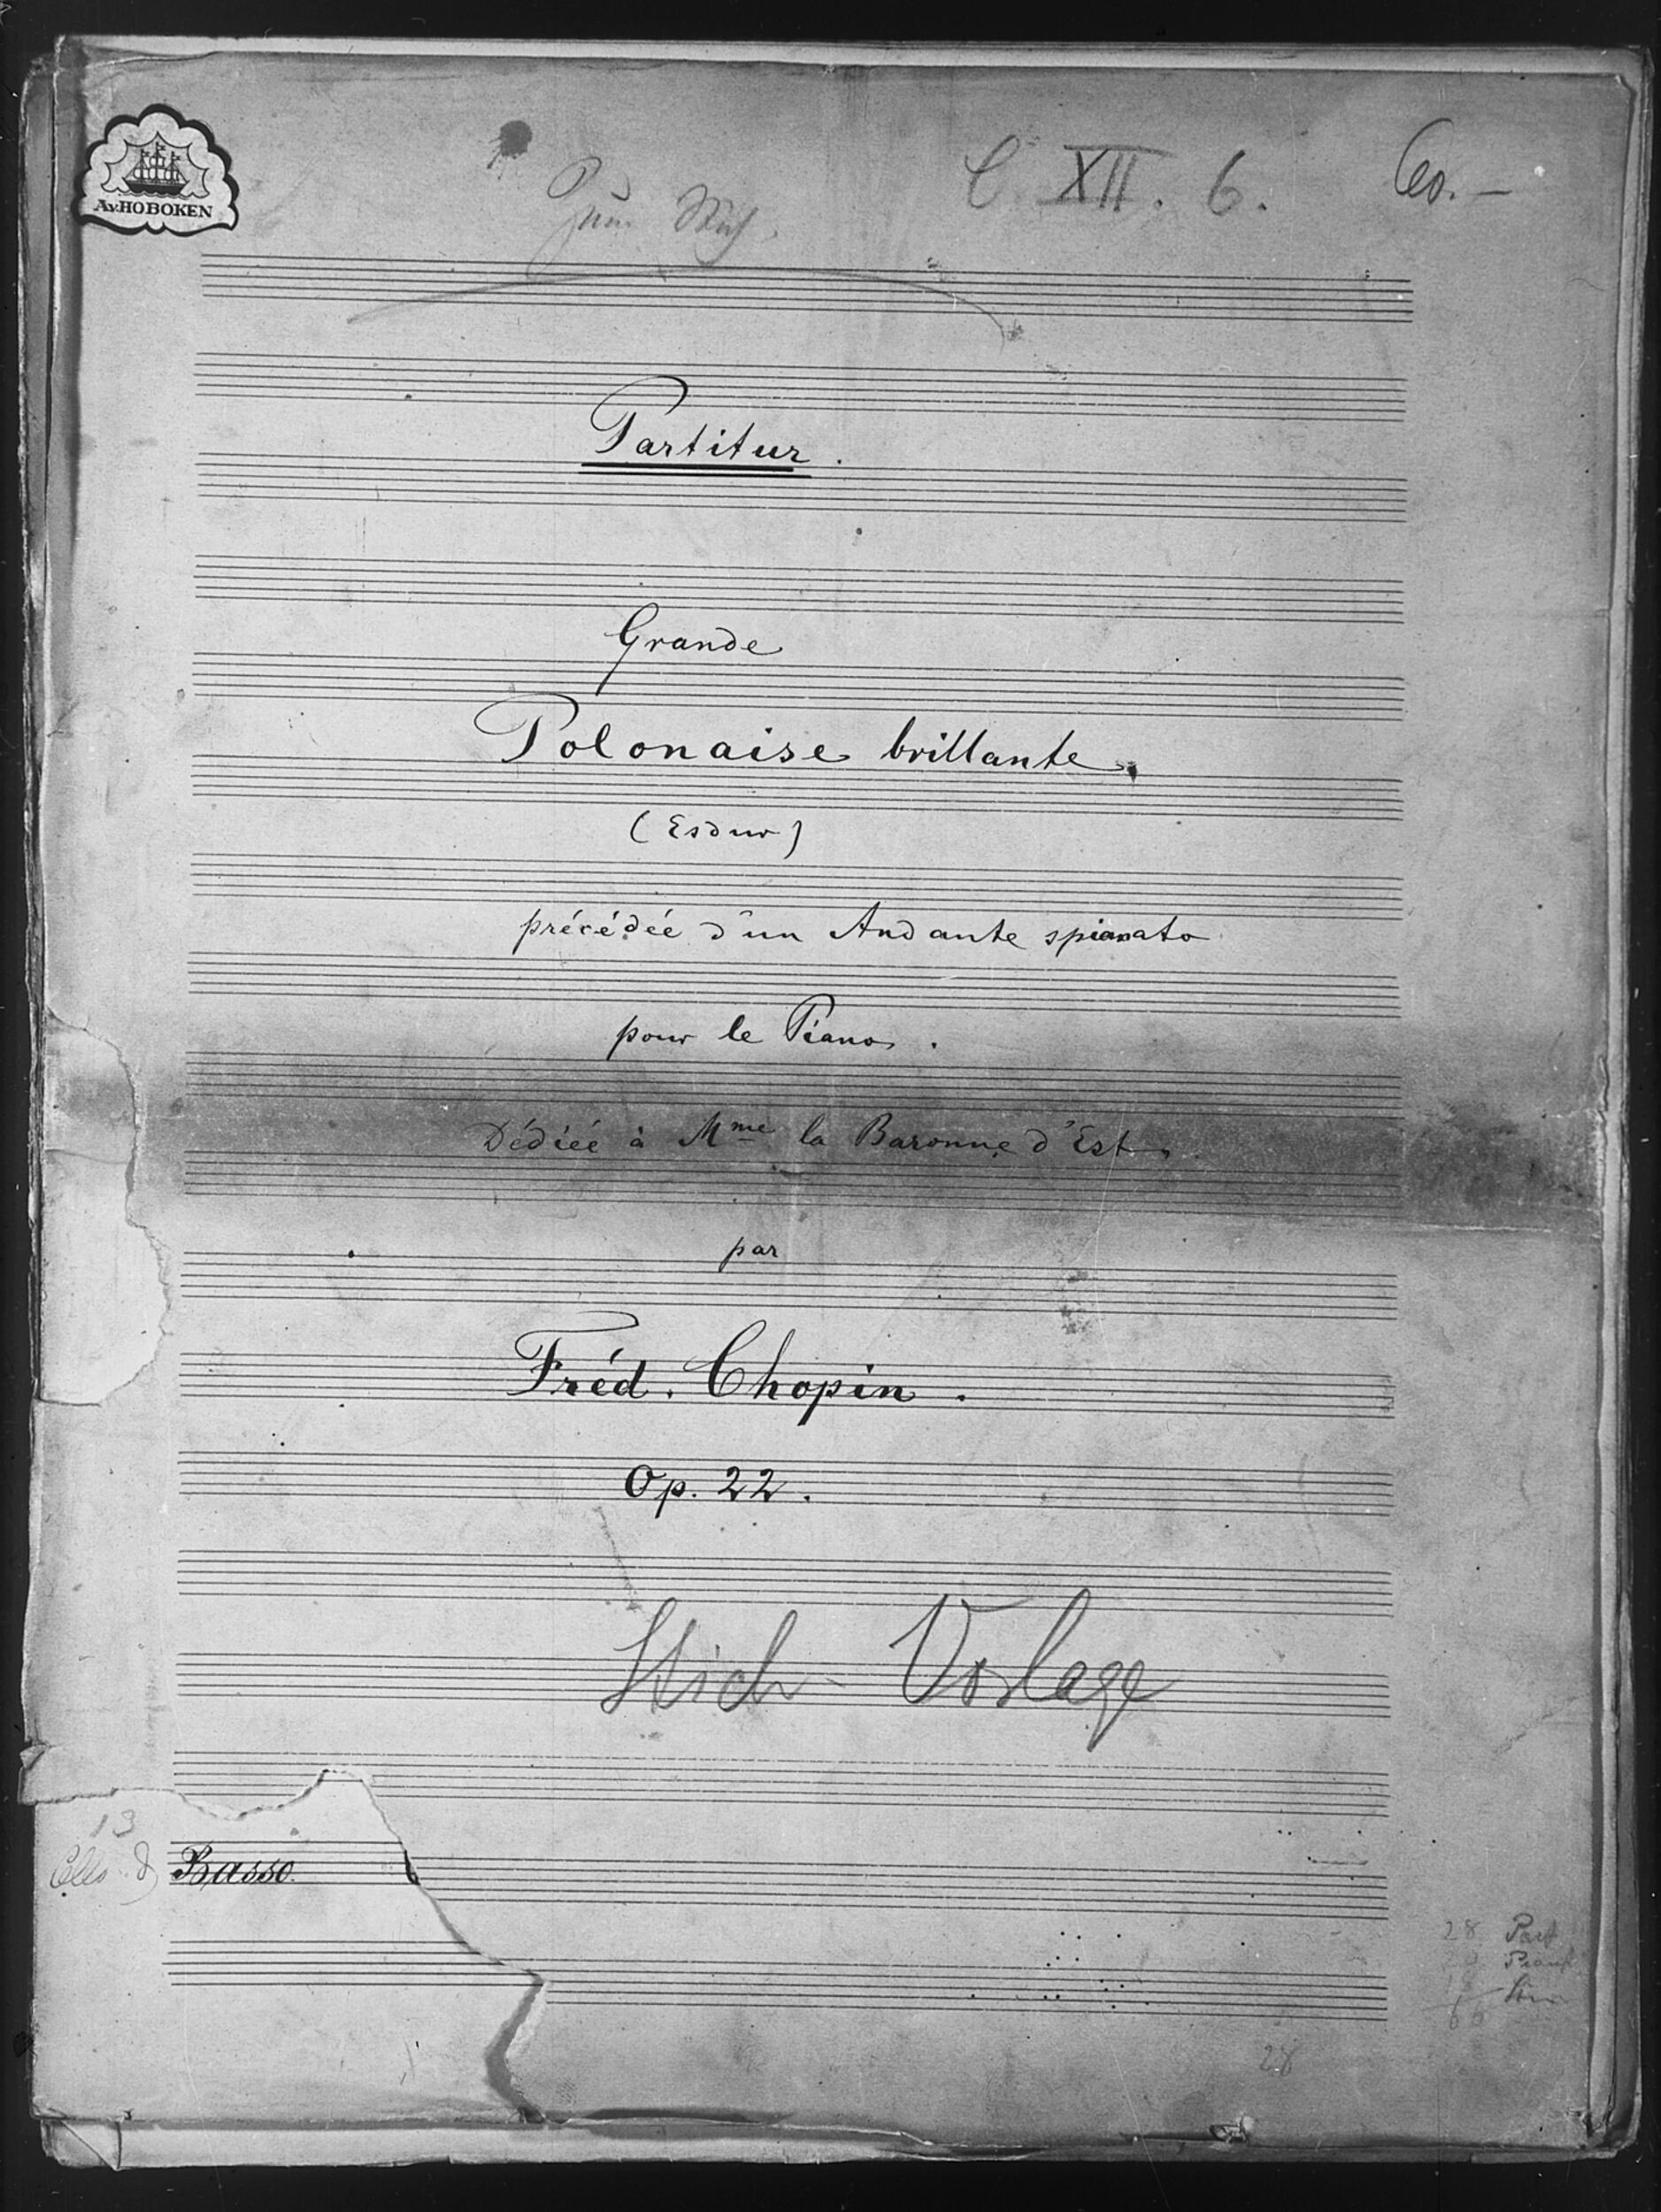 A.v.HOBOKEN
Zum Stich.
C XII. 6.
60.-
Partitur.
Grande
Polonaise brillante.
(Esdur)
précédée d'un Andante spianato
pour le Piano.
Dédiée à Mme la Baronne d'Est.
par
Fréd. Chopin.
Op. 22.
Stich-Vorlage
13
Basso.
28 Part
28